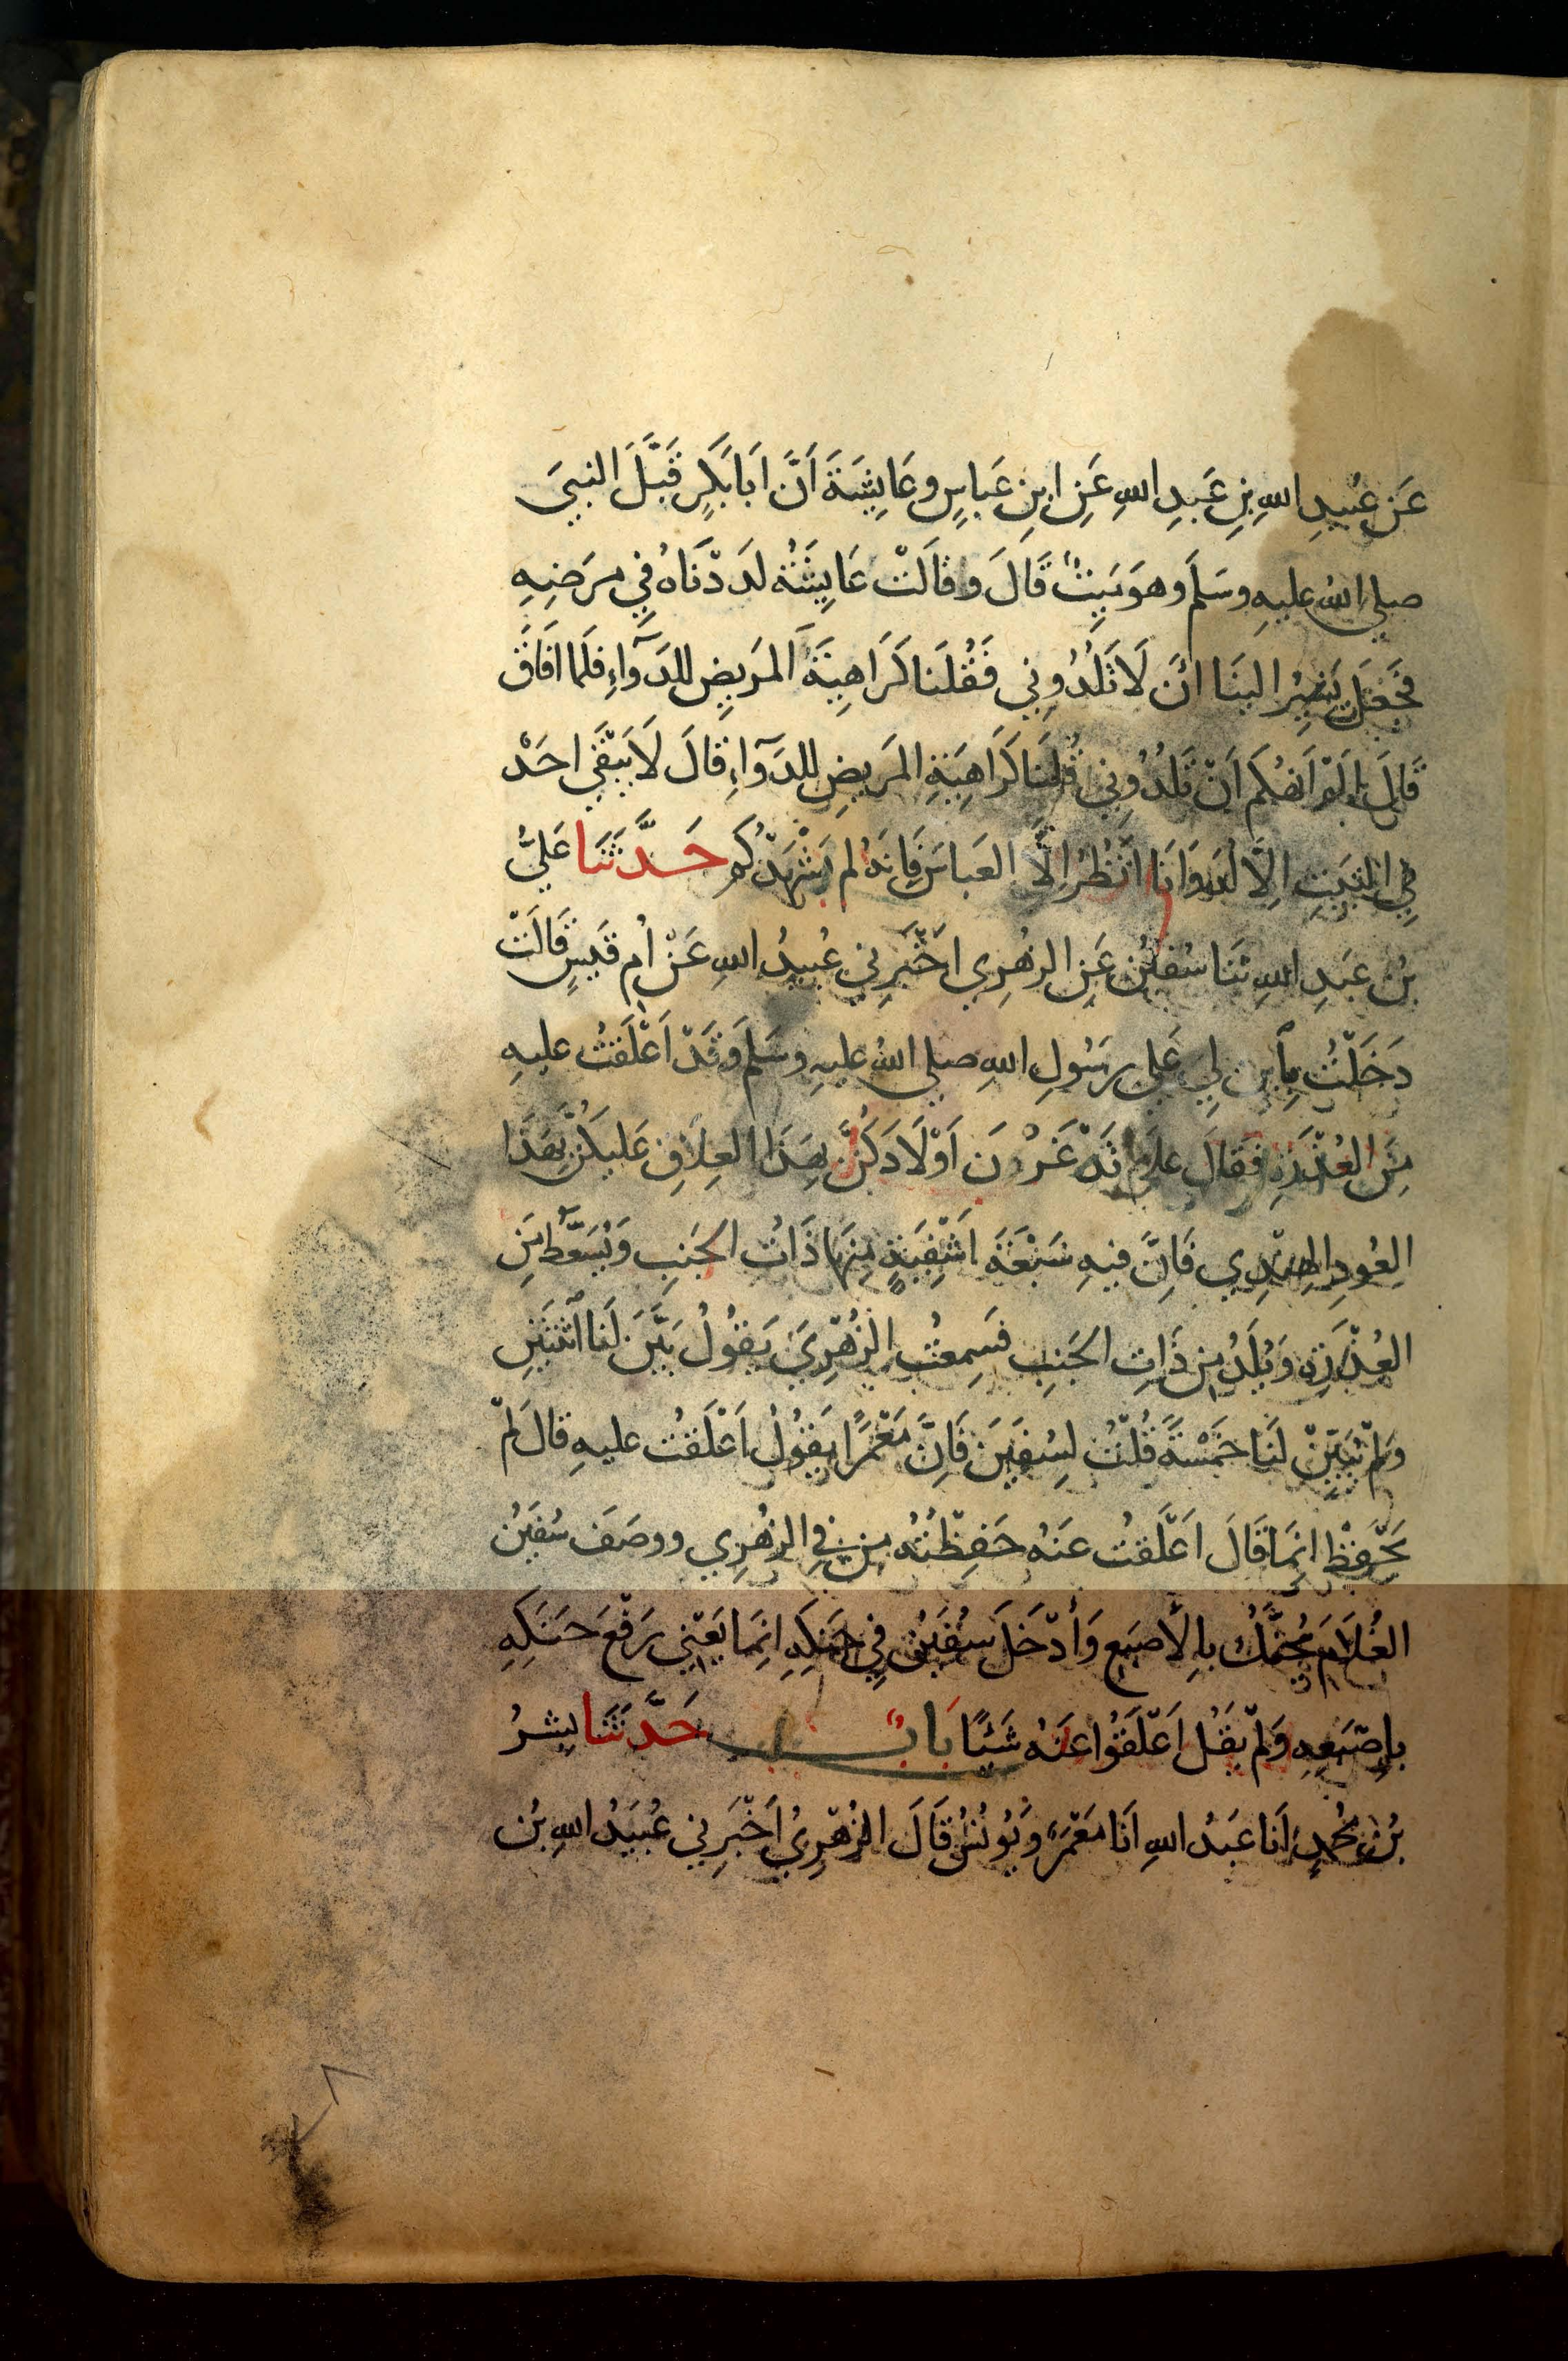 عَن عُبَيدِ اللهِ بنِ عَبدِ اللهِ عَنِ ابنِ عَباسٍ وعَايِشَةَ اَنَّ اَبَا بَكرٍ قَبَّلَ النبيَ
صلي اللهُ عليهِ وسَلمَ وهوَ مَيِتٌ قَالَ وقالَتْ عَايِشَةُ لَدَدْنَاهُ فِي مرَضِهِ
فَجَعَلَ يُشيرُ الينَا انْ لَا تَلُدُونِي فَقُلنَا كَرَاهِيَةُ المَرِيضِ للدَوَآءِ فلَما افَاقَ
قَالَ اَلَمْ اَنهَكُم اَنْ تَلُدُونِي قُلنَا كَرَاهِيَةِ المَرِيضِ للدَوَآءِ قالَ لَا يَبْقَي احَدْ
فِي البَيتِ الِاَّ لُدَ وَاَنَا اَنْظُرُ اِلَّا العَباسَ فَاِنهُ لم يَشْهَدْكُم حَدَّثَنَا عَليُّ
بنُ عَبدِ اللهِ ثنَا سُفيٰنُ عَنِ الزهُرِي اخْبَرِني عُبيدُ اللهِ عَنْ اُم قَيسٍ قَالَتْ
دَخَلْتُ بِاَبنٍ لِي عَلي رسَُولِ اللهِ صلي اللهُ عليهِ وسَلمَ وَقَدْ اَعْلَقتُ عليهِ
مِنَ العُذْرَةِ فقَالَ علَامَ تَدْغَرْونَ اَوْلَادَكُنَّ بهَذا العِلَاقِ عَليكُنَّ بهَذا
العُودِ الهِندِي فَاِنَّ فيهِ سَبْعَةَ اَشْفِيَةٍ مِنهَا ذَاتُ الجَنبِ وَيُسَعَّطُ مِنَ
العُذْرَةِ وَيُلَدُ مِن ذَاتِ الجَنبِ فسَمِعتُ الزُهْرِيَ يَقُولُ بَيَّنَ لَنا اثنَينِ
ولَمْ يُبَيِّنْ لنَا خَمْسَةً قُلْتُ لِسُفيَنَ فَاِنَّ مَعْمَرًا يَقوُلُ اَعْلَقتُ عليهِ قالَ لَمْ
يَحْفَظْ انِمَا قَالَ اَعْلَقتُ عَنهُ حَفِظْتُهُ مِن فِي الزهُرِي ووصَفَ سُفيَنُ
الغُلَامَ يُحَنَّكُ بالِاصبَعِ وَاَدْخَلَ سُفيَنُ فِي حَنكِهِ انِمَا يَعْنِي رَفْعَ حَنَكِهِ
باِصْبَعِهِ وَلَمْ يقُل اَعْلَقُوا عَنهُ شَيْئًا بَابٌ حَدَّثَنَا بِشرُ
بنُ مُحمدٍ اَنَا عَبدُ اللهِ اَنَا مَعْمَرٌ وَيُونُسُ قَالَ الزُهْرِيُ اَخْبَرِني عُبَيدُ اللهِ بن